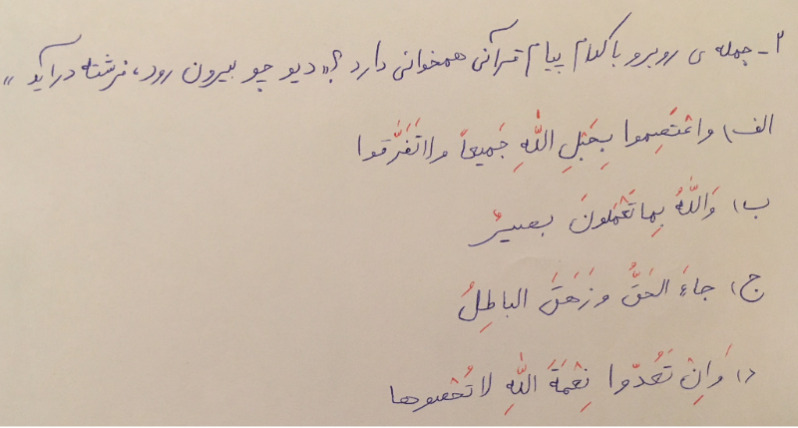 ۲- جمله ی روبرو با کدام پیام قرآنی همخوانی دارد ؟ « دیو چو بیرون رود، فرشته درآید »
الف) واعْتَصِموا بِحَبْلِ اللّٰهِ جَمیعاً ولاتَفَرَّقوا
ب) وَاللّٰهُ بِما تَعْمَلونَ بصیرٌ
ج) جاءَ الحَقُّ وزَهَقَ الباطِلُ
د) وَاِنْ تَعُدّوا نِعْمَةَ اللّٰهِ لا تُحْصوها